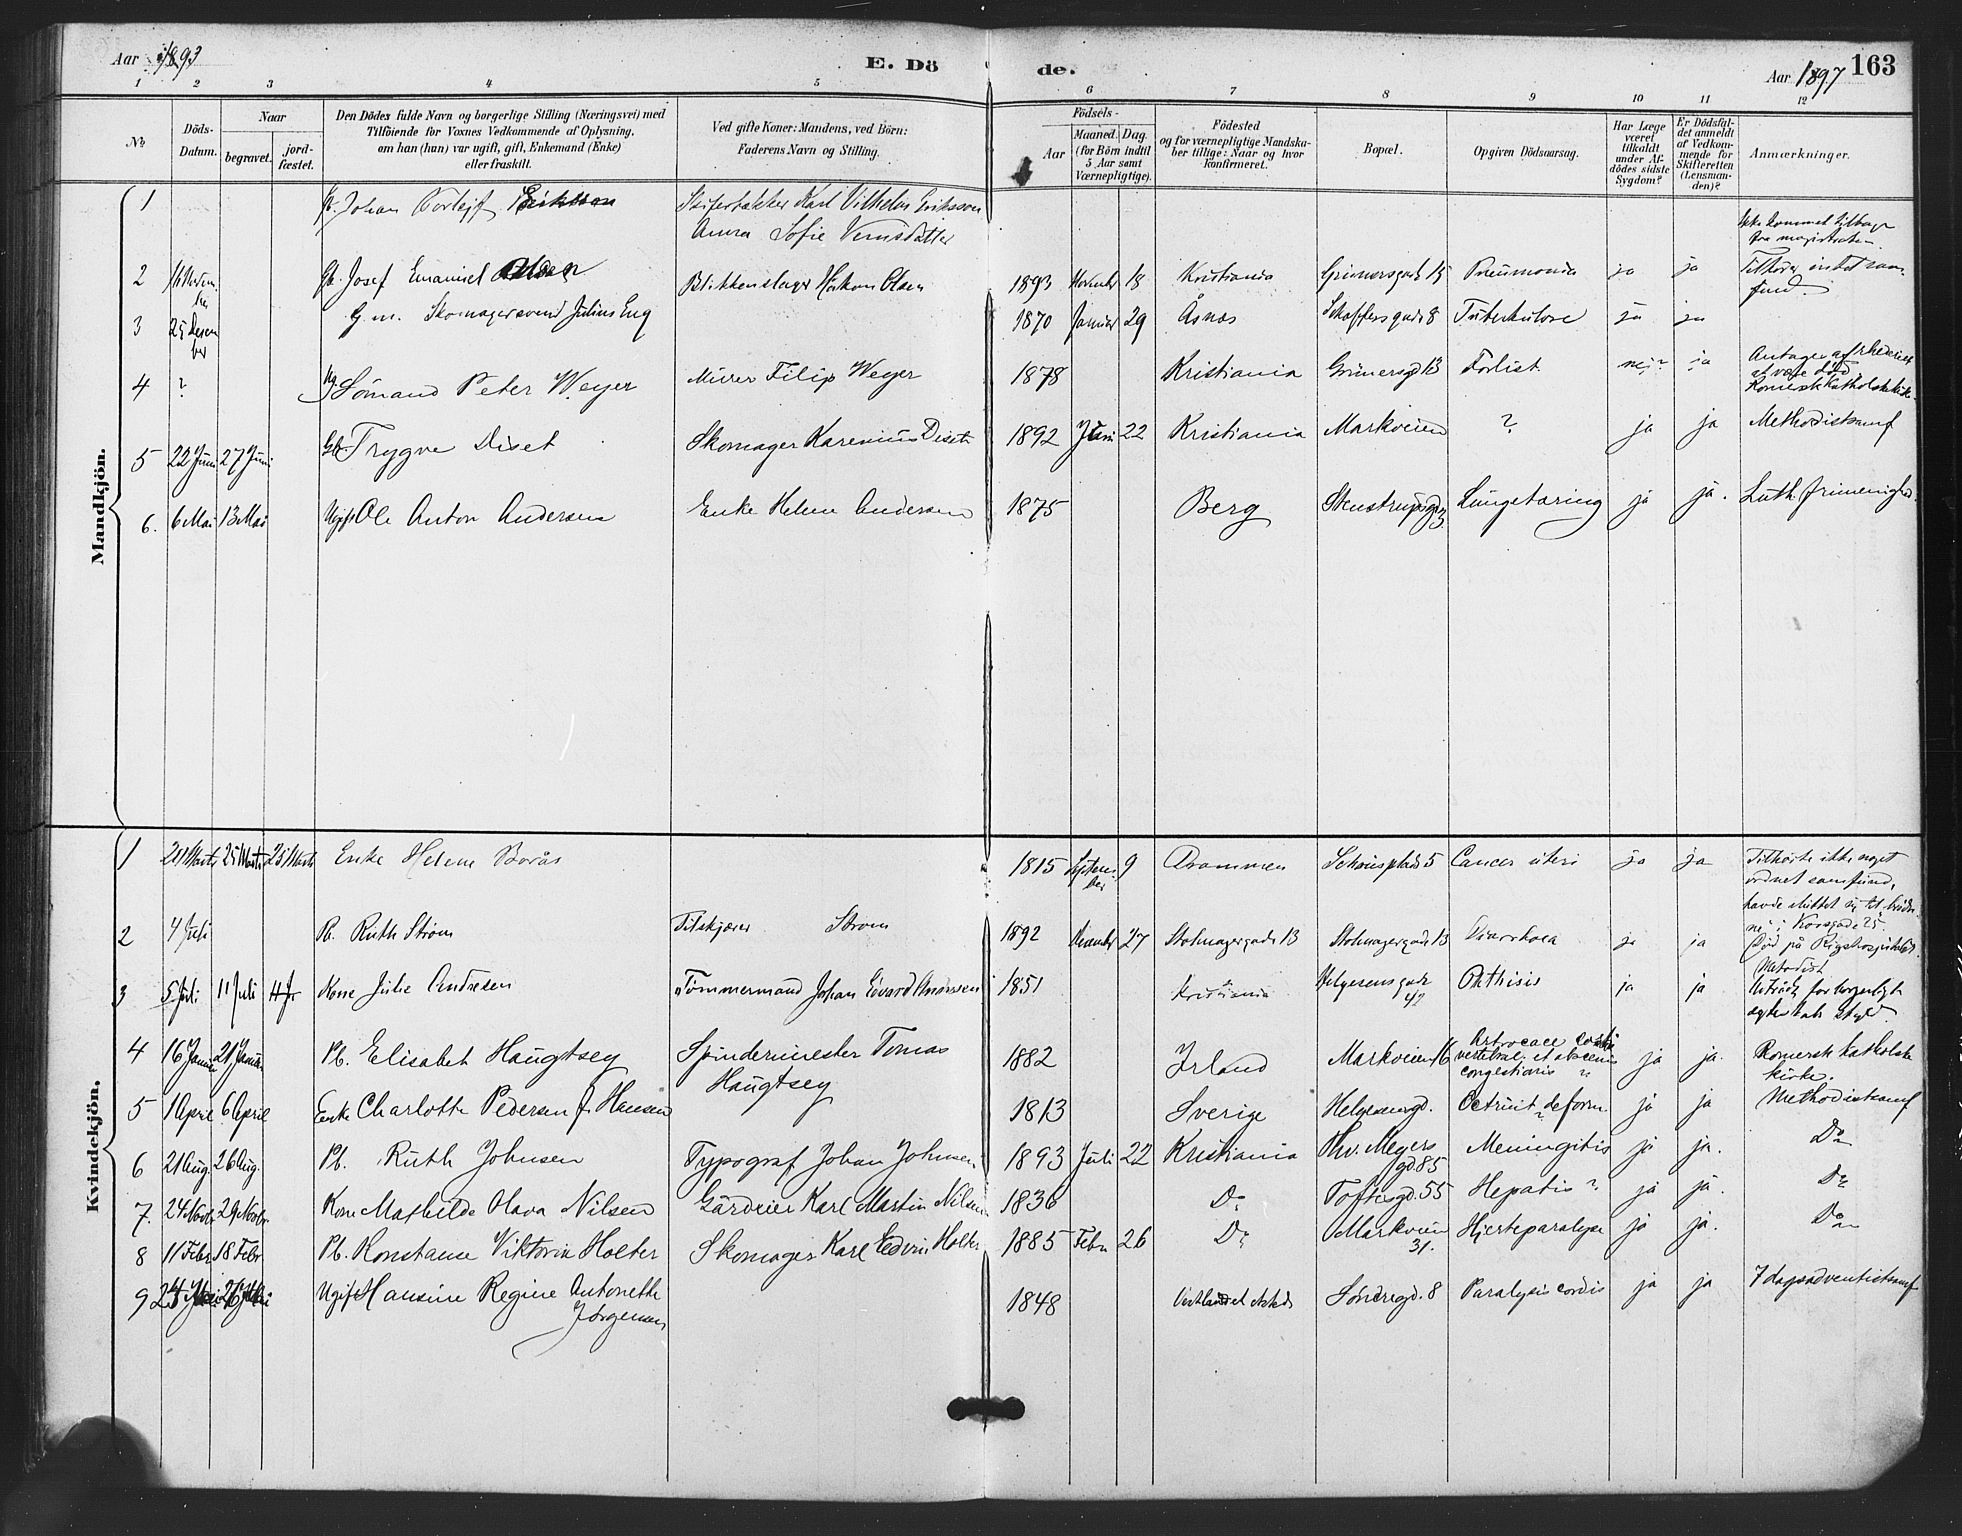 Aar 1893 E. Dö de. Aar 1897 163
1 2 3 4 5 6 7 8 9 10 11 12
No
Döds-Datum.
Naar
begravet. jordfæstet.
Den Dödes fulde Navn og borgerlige Stilling (Næringsvei) med
Tilföiende for Voxnes Vedkommende af Oplysning,
om han (hun) var ugift, gift, Enkemand (Enke)
eller fraskilt.
Ved gifte Koner: Mandens, ved Börn:
Faderens Navn og Stilling.
Födsels-
Aar
Maaned. Dag.
(for Börn indtil
5 Aar samt
Værnepligtige).
Födested
og for værnepligtige Mandskaber tillige: Naar og hvor
konfirmeret.
Bopæl.
Opgiven Dödsaarsag.
Har Læge
været
tilkaldt
under Afdödes sidste
Sygdom?
Er Dödsfaldet anmeldt
af Vedkommende for
Skifteretten
(Lensmanden)?
Anmærkninger.
Mandkjön.
1 Johan Torleif Eriksson Skifertækker Karl Vilhelm Eriksson
Anna Sofie
Ikke kommet tilbage
fra magistraten.
2 Josef Emanuel Olsen Blikkenslager Håkon Olsen 1893 November 18 Kristiania Grünersgade 15 Pneumonia ja ja
3 25 Desember G. m. Skomagersvend Julius Eng 1870 Januar 29 Åsnes 8 Tuberkulose ja ja
4 ? Ug Sömand Peter Weyer Murer Filip Weyer 1878 Kristiania Grünersgd 13 Forlist. nei? ja Antages af rhederiet
at være död
Romersk katholsk kirke.
5 22 Juni 27 Juni Gb. Trygve Diset Skomager Karenius Diset 1892 Juni 22 Kristiania Markveien ? ja ja Methodistsamf
6. 6 Mai 13 Mai Ugift Ole Anton Andersen Enke Helene Andersen 1875 Berg Stenstrupsgd 3 Lungetæring ja ja. Luth. frimenighed.
Kvindekjön.
1 25 Marts 25 Marts Enke Helene Borås 1815 September 9 Drammen Schousplads 5 Cancer uteri ja ja Tilhørte ikke noget
ordnet samfund,
havde sluttet sig til
i Korsgade 25.
2 4 Juli Pb. Ruth Ström Filskjærer Ström 1892 27 13 13 Diarrhoea ja ja Död på Rigshospitalet.
Metodist
3 5 Juli 11 Juli Kone Julie Andresen Tömmermand Johan Edvard Andresen 1851 Kristiania Helgesensgade
42 Phthisis ja ja Utrådt for borgerligt
ægteskabs skyld.
4 16 Januar 21 Januar Pb. Elisabet Haugtsey Spindemester Tomas
Haugtsey 1882 Irland Markveien 16 ja ja. Romersk katholske
kirke.
5 1 April 6 April Enke Charlotte Pedersen f. Hansen 1813 Sverige Helgesensgd. deform. ja ja Methodistsamf
6 21 Aug. 26 Aug. Pb. Ruth Johnsen Typograf Johan Johnsen 1893 Juli 22 Kristiania Thv. Meyers
gd. 85 Meningitis ja ja. Do
7. 24 Novbr 29 Novbr. Kone Mathilde Olava Nilsen Gårdeier Karl Martin Nilsen 1836 Do Toftesgd. 55 Hepatis ? ja ja. Do
8 11 Febr 18 Febr. Pb. Konstanse Viktoria Holter Skomager Karl Edvin Holter 1885 Febr 26 Do Markveien
31. Hjerteparalyse ja ja. Do
9 Ugift Hansine Regine Antonette
Jörgensen 1848 Söndregd. 8 Paralysis cordis ja ja 7 dagsadventistsamf